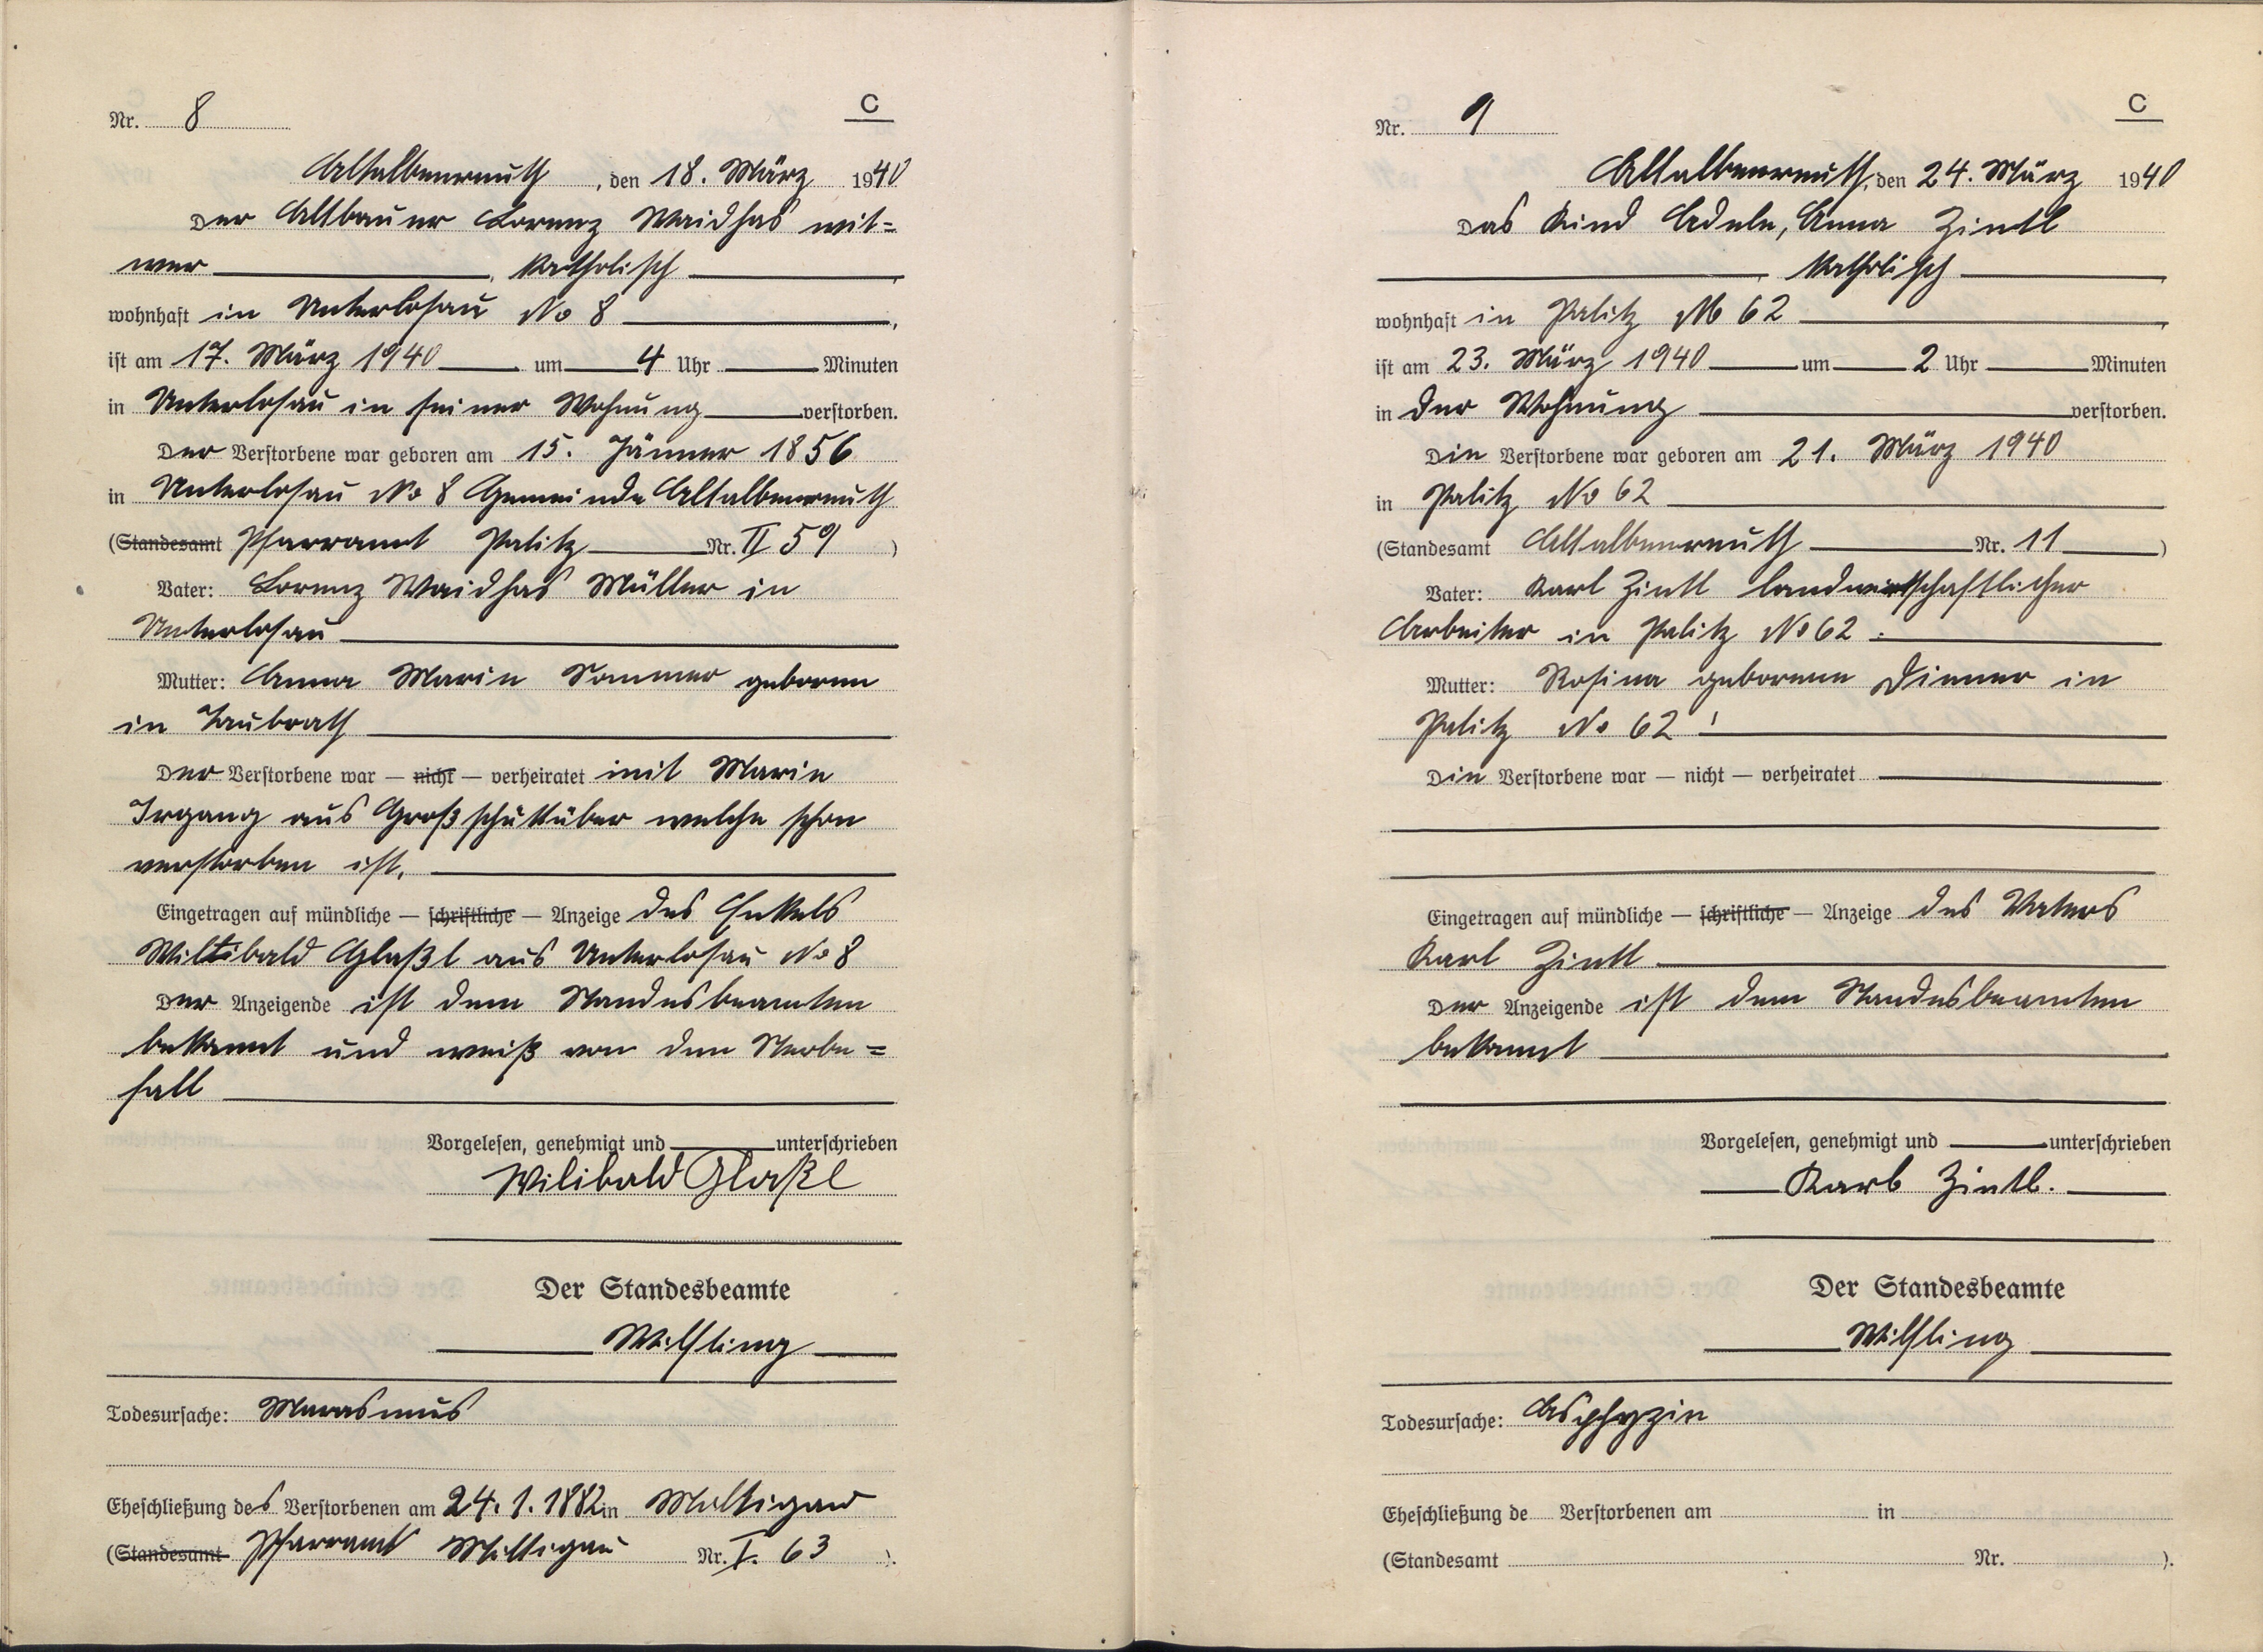 C
Nr. 8
Altalbenreuth, den 18. März 1940
Der Altbauer Lorenz Waidhas wit=
wer, katholisch,
wohnhaft in Unterlosau No 8,
ist am 17. März 1940 um 4 Uhr Minuten
in Unterlosau in seiner Wohnung verstorben.
Der Verstorbene war geboren am 15. Jänner 1856
in Unterlosau No 8 Gemeinde Altalbenreuth
(Standesamt Pfarramt Palitz Nr. II 59)
Vater: Lorenz Waidhas Müller in
Unterlosau
Mutter: Anna Marie Sommer geboren
in Taubrath
Der Verstorbene war — nicht — verheiratet mit Marie
Irgang aus Großschüttüber welche schon
verstorben ist.
Eingetragen auf mündliche — schriftliche — Anzeige des Enkels
Willibald Glaßl aus Unterlosau No 8
Der Anzeigende ist dem Standesbeamten
bekannt und weiß von dem Sterbe=
fall
Vorgelesen, genehmigt und unterschrieben
Wilibald Glaßl
Der Standesbeamte
Wilfling
Todesursache: Marasmus
Eheschließung des Verstorbenen am 24.1.1882 in Miltigau
(Standesamt Pfarramt Miltigau Nr. I. 63).
C
Nr. 9
Altalbenreuth, den 24. März 1940
Das Kind Adele, Anna Zintl
, katholisch,
wohnhaft in Palitz No 62,
ist am 23. März 1940 um 2 Uhr Minuten
in der Wohnung verstorben.
Die Verstorbene war geboren am 21. März 1940
in Palitz No 62
(Standesamt Altalbenreuth Nr. 11)
Vater: Karl Zintl landwirtschaftlicher
Arbeiter in Palitz No 62.
Mutter: Rosina geborene Dimmer in
Palitz No 62!
Die Verstorbene war — nicht — verheiratet
Eingetragen auf mündliche — schriftliche — Anzeige des Vaters
Karl Zintl
Der Anzeigende ist dem Standesbeamten
bekannt
Vorgelesen, genehmigt und unterschrieben
Karl Zintl.
Der Standesbeamte
Wilfling
Todesursache: Asphyzie
Eheschließung de Verstorbenen am in
(Standesamt Nr. ).